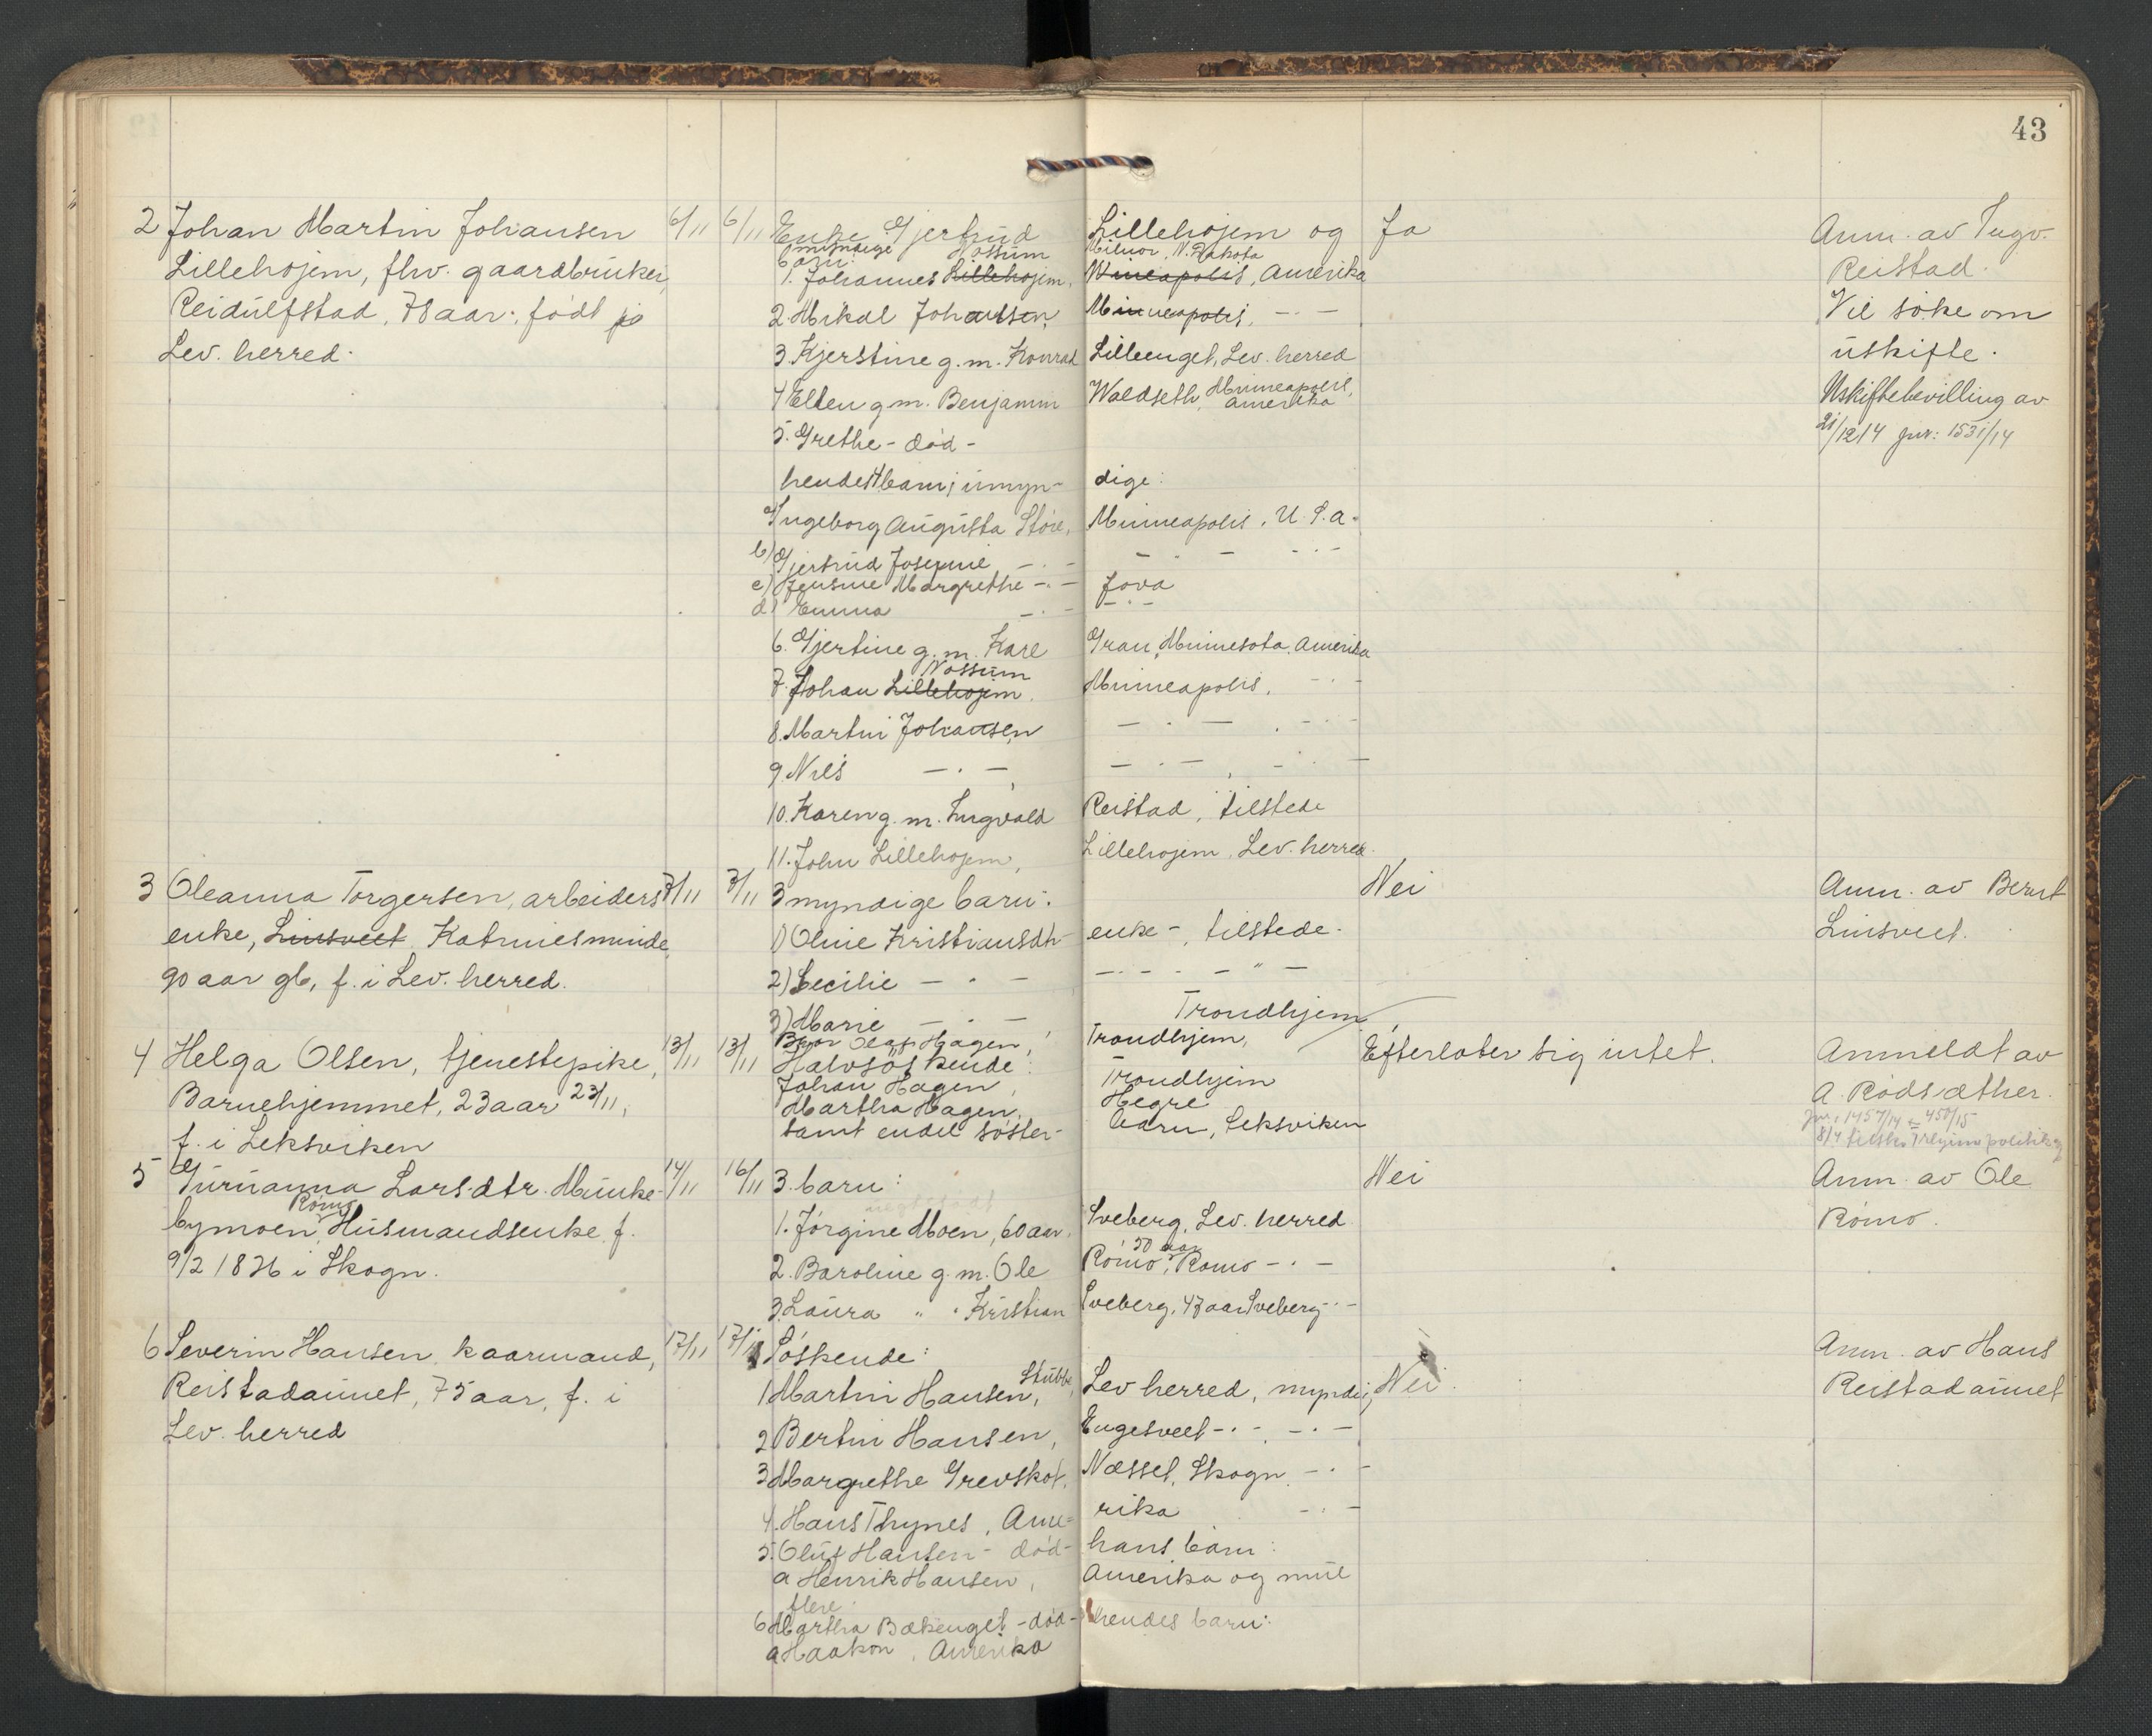 43
2 Johan Martin Johansen 6/11 6/11 Enke Gjertrud Lillehojem og Ja Anm. av Ingv.
Lillehojem, fhv. gaardbruker, myndige barn: Reistad.
1. Johannes Lillehojem, Hossum Milnor, N. Dakota Mineapolis, Amerika
Reidulfstad, 78 aar, født på 2. Mikal Johansen, Minneapolis, -"- Vil søke om
Lev. herred. 3. Kjerstine g. m. Konrad Lilleenget, Lev. herred uskifte.
4 Ellen g m. Benjamin Waldseth, Minneapolis, Amerika Uskiftebevilling av
5. Grethe - død - 21/12 14 jnr: 1531/14
hendes 4 barn; umyn- dige:
Ingeborg Augusta Støre, Minneapolis, U. S. a.
b) Gjertrud Josefine -"- - " - -"-
c) Jensine Margrethe -"- Jova
d) Emma -"- -"-
6. Gjertine g. m. Karl Gran, Minnesota, Amerika
7. Johan Lillehojem. Nossum Minneapolis, -"-
8. Martin Johansen -"- , -"-
9 Nils -"-, -"- , -"-
10. Karen g. m. Ingvald Reistad, tilstede
11. John Lillehojem, Lillehojem, Lev. herred.
3 Oleanna Torgersen, arbeiders 7/11 7/11 3 myndige barn: Nei Anm. av Bernt
enke, Linsveet Katrinesminde, 1) Oline Kristiansdtr enke -, tilstede. Linsveet.
90 aar gl, f. i Lev. herred. 2) Cecilie -"- -"- - " -
3) Marie -"- Trondhjem
4 Helga Olsen, tjenestepike, 13/11 13/11 Bror Olaf Hagen, Trondhjem, Efterlater sig intet. Anmeldt av
Halvsøskende:
Barnehjemmet, 23 aar 23/11, Johan Hagen, Trondhjem A. Rødsæther.
Martha Hagen, Hegre
f. i Leksviken samt endel søster- barn, Leksviken jnr. 1457/14 450/15
5 Gurianna Larsdtr. Munke- 14/11 16/11 3 barn: Nei Anm. av Ole
bymoen, Rømo Husmandsenke f. 1. Jørgine Moen, 60 aar, Sveberg, Lev. herred. Rømo.
9/2 1826 i Skogn. 2. Baroline g. m. Ole Rømo, 50 aar Rømo -"-
3. Laura " " Kristian Sveberg, 47 aar Sveberg -"-
6 Severin Hansen, kaarmand, 17/11 17/11 Søskende: Anm. av Hans
Reistadaunet, 75 aar, f. i 1 Martin Hansen, Stubbe, Lev herred, myndig, Nei. Reistadaunet
Lev. herred 2 Bertin Hansen, Engesveet -"-, -"-
3 Margrethe Grevskot, Næsset, Skogn -"-
4. Hans Thynes, Ame= rika -"-
5. Oluf Hansen - død - hans barn:
a Henrik Hansen, Amerika og mul
flere.
6 Martha Bækenget - død - hendes barn:
a Haakon, Amerika